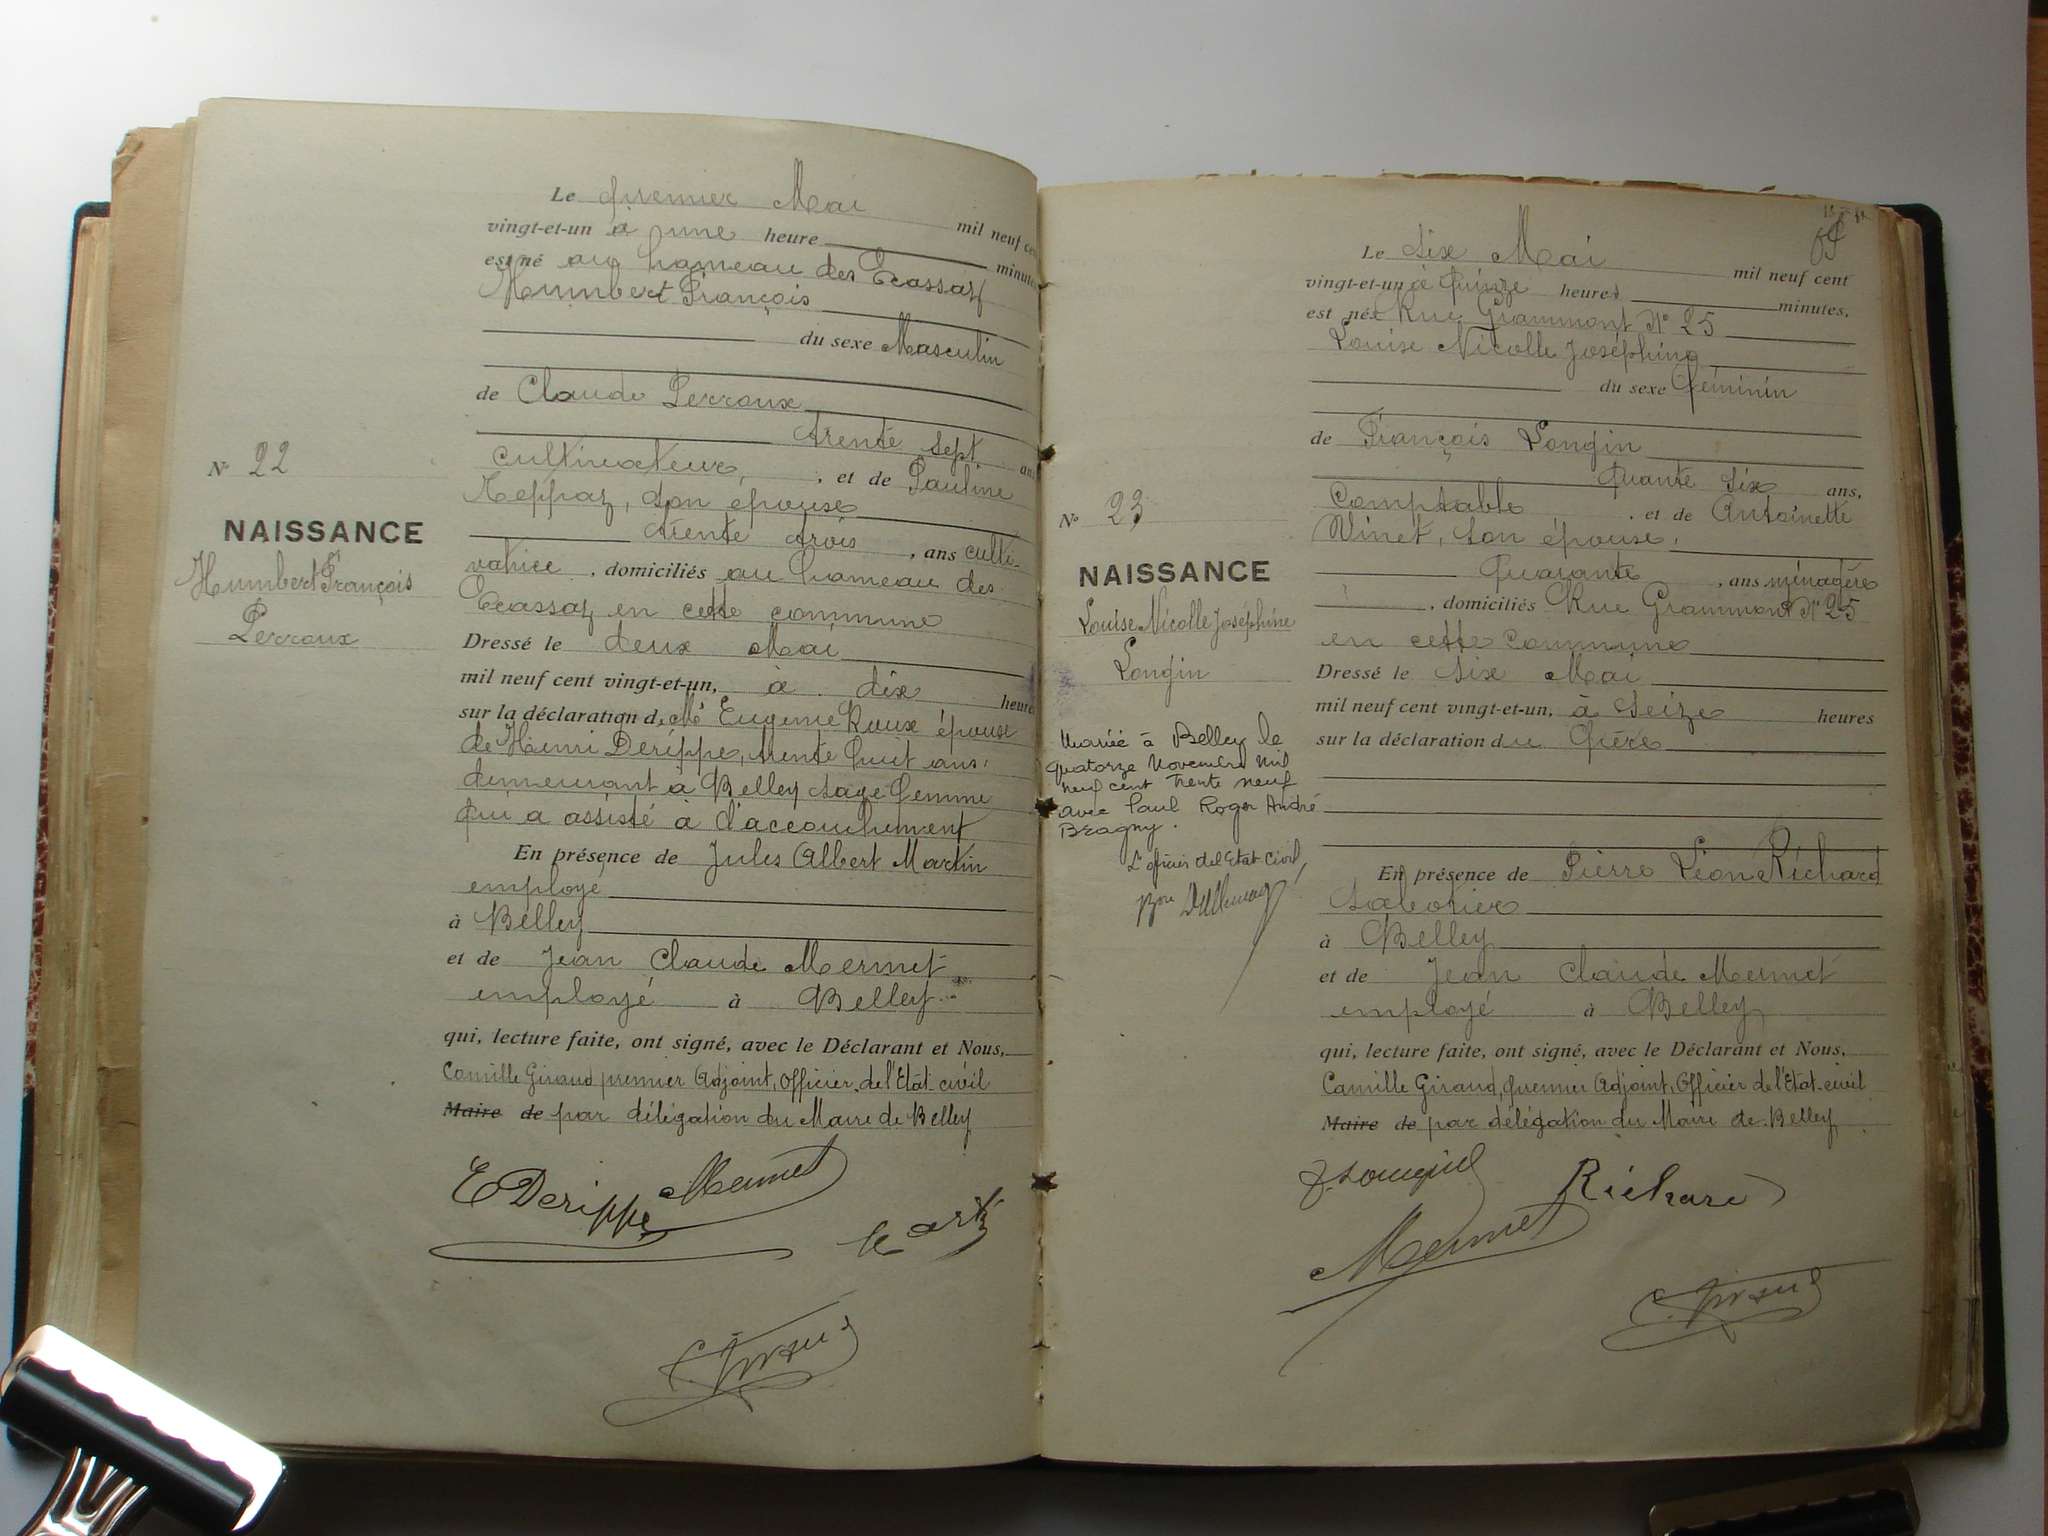 Le premier Mai mil neuf cen
vingt-et-un à une heure minutes
est né au hameau des Ecassaz
Humbert François
du sexe Masculin
de Claude Perroux
trente sept ans
cultivateur, , et de Pauline
Reppaz, son épouse
trente trois , ans culti-
vatrice , domiciliés au hameau des
Ecassaz en cette commune
Dressé le deux Mai
mil neuf cent vingt-et-un, à dix heures
sur la déclaration de Mé Eugenie Roux épouse
de Henri Derippe, trente huit ans,
demeurant à Belley sage femme
qui a assisté à l'accouchement
En présence de Jules Albert Martin
employé
à Belley
et de Jean Claude Mermet
employé à Belley
qui, lecture faite, ont signé, avec le Déclarant et Nous,
Camille Giraud premier Adjoint, Officier de l'Etat-civil
Maire de par délégation du Maire de Belley
E Derippe Mermet
Martin
C. Giraud
N° 22
NAISSANCE
Humbert François
Perroux
Le six Mai mil neuf cent
vingt-et-un à quinze heures minutes,
est née Rue Grammont N° 25
Louise Nicolle Joséphine
du sexe féminin
de François Longin
quante six ans,
Comptable , et de Antoinette
Ninet, son épouse,
quarante , ans ménagère
, domiciliés Rue Grammont N° 25
en cette commune
Dressé le six Mai
mil neuf cent vingt-et-un, à seize heures
sur la déclaration du père
En présence de Pierre Léon Richard
sabotier
à Belley
et de Jean Claude Mermet
employé à Belley
qui, lecture faite, ont signé, avec le Déclarant et Nous,
Camille Giraud, premier Adjoint, Officier de l'Etat-civil
Maire de par délégation du Maire de Belley
F. Longin Richard
Mermet
C. Giraud
N° 23
NAISSANCE
Louise Nicolle Joséphine
Longin
Mariée à Belley le
quatorze Novembre mil
neuf cent trente neuf
avec Paul Roger André
Bragny.
L'officier de l'Etat Civil,